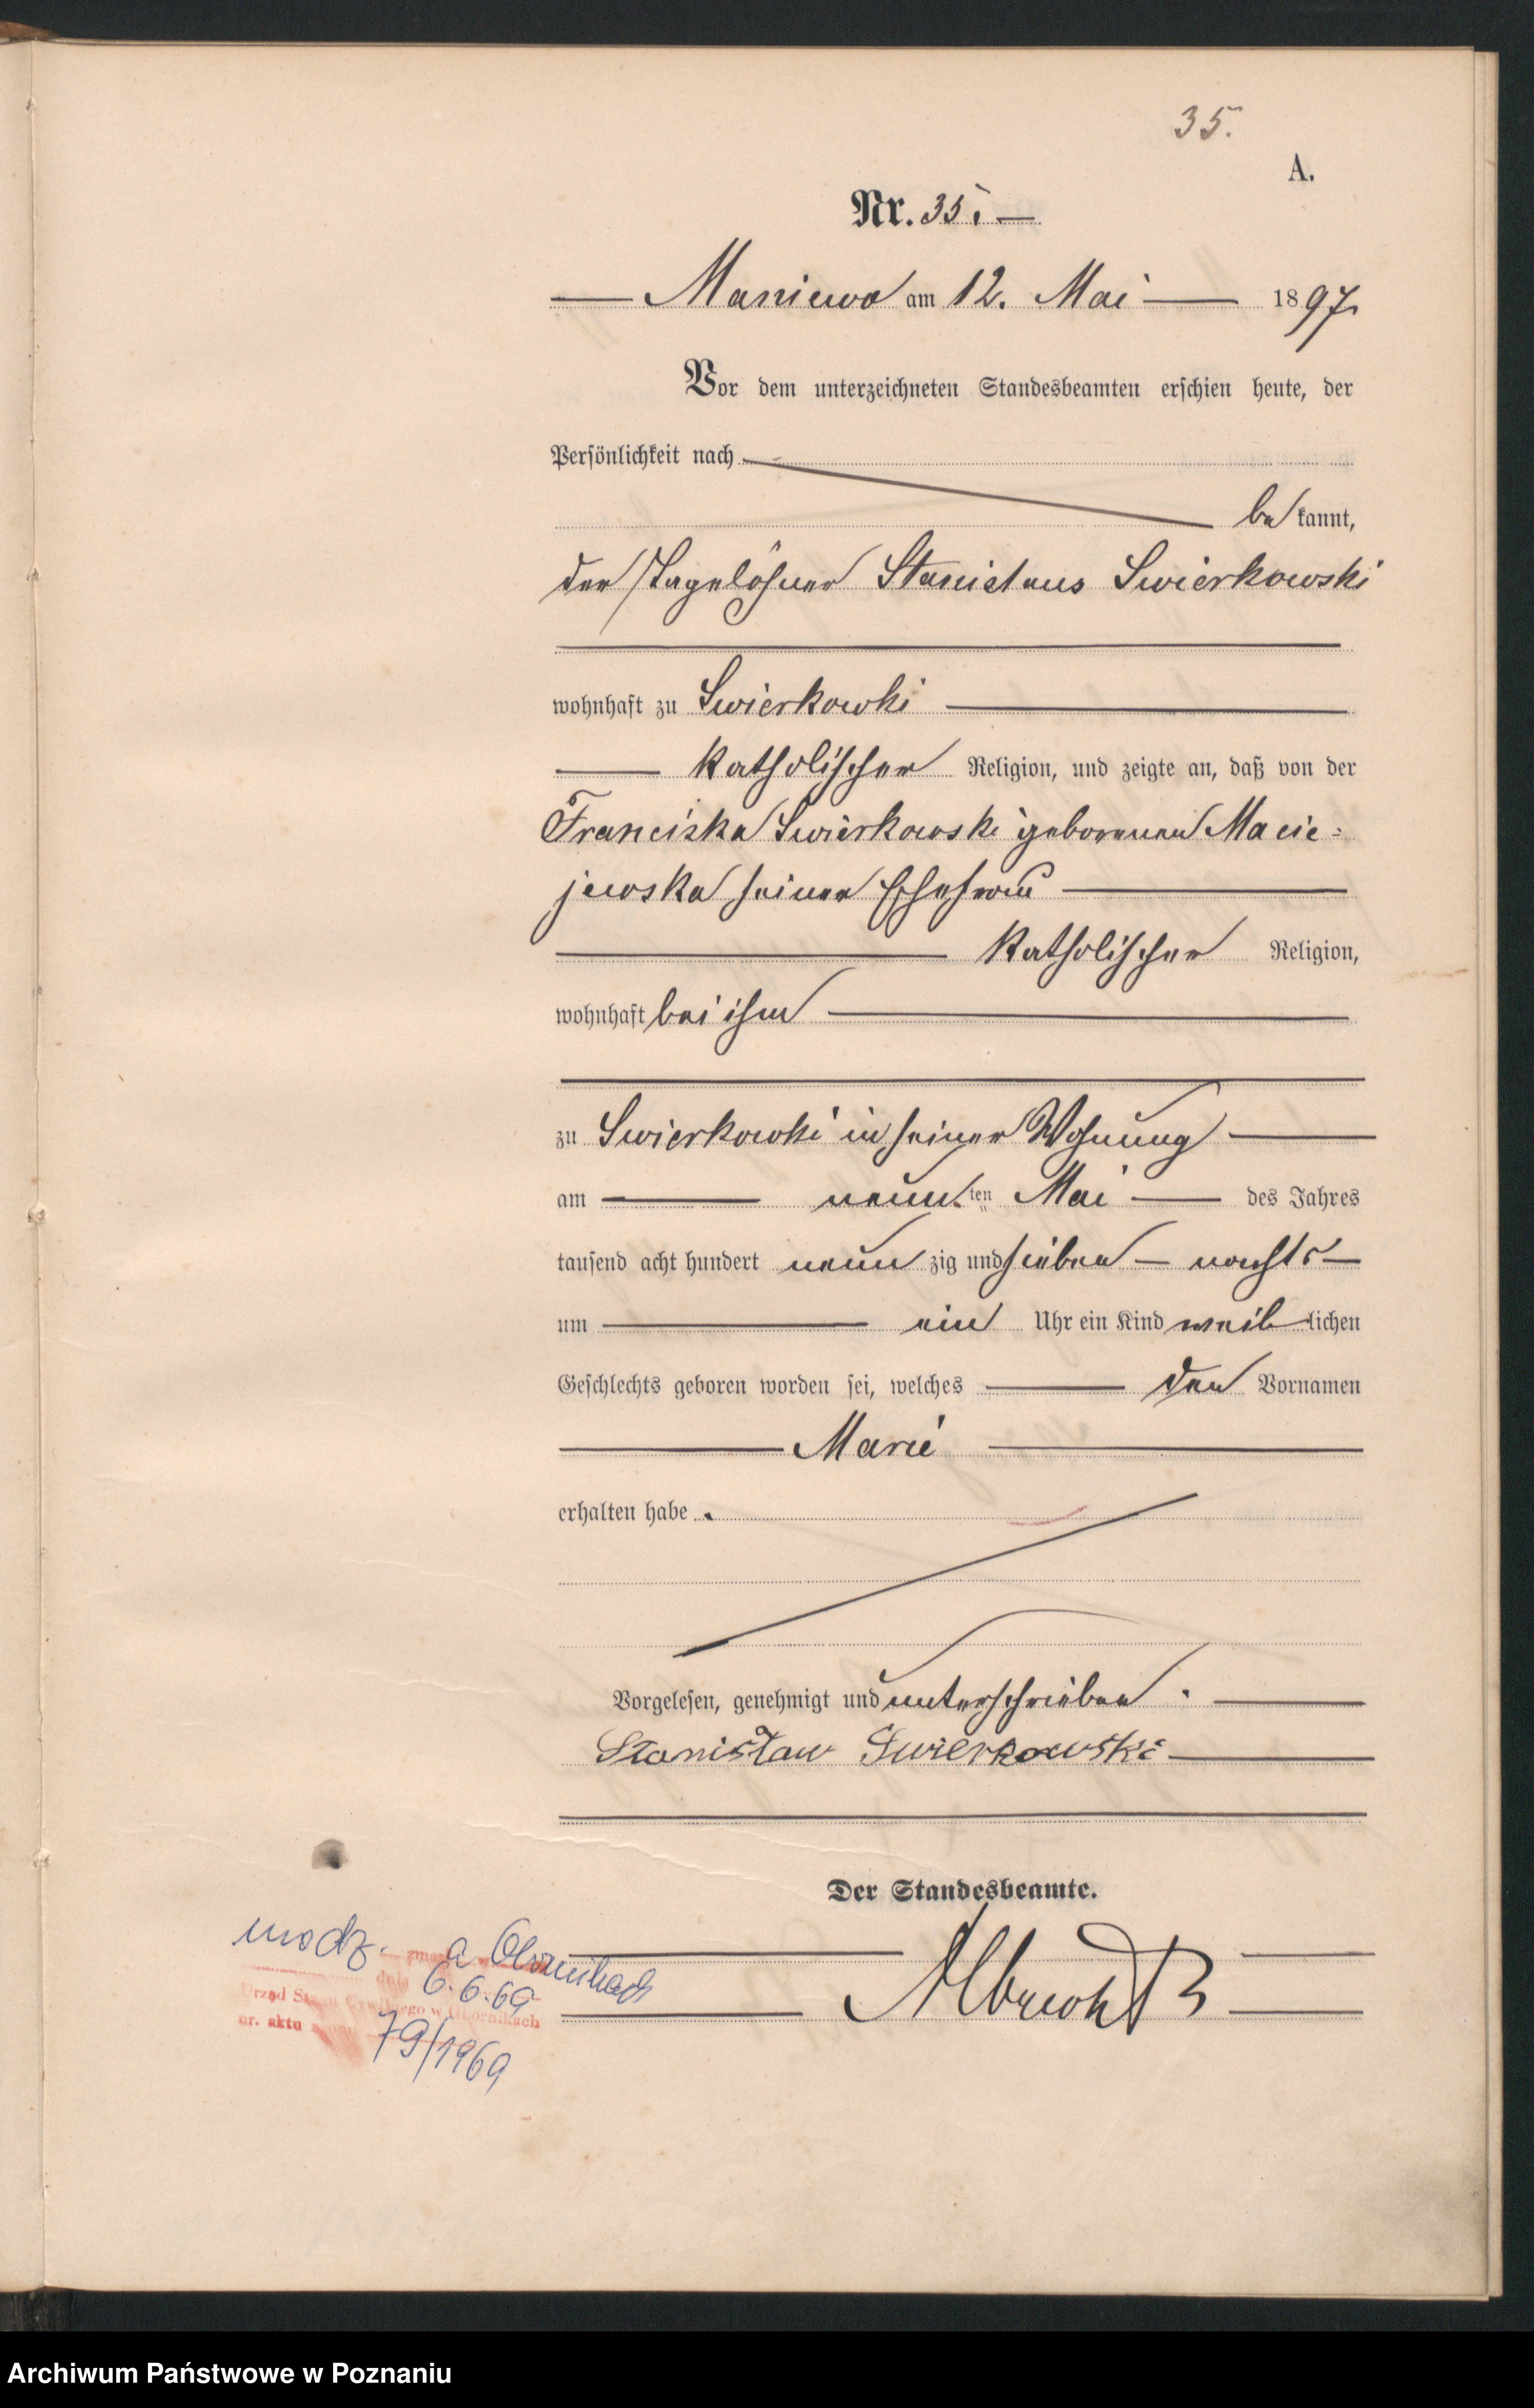 35.
A.
Nr. 35. —
— Maniewo am 12. Mai — 1897.
Vor dem unterzeichneten Standesbeamten erschien heute, der
Persönlichkeit nach
be kannt,
der Tagelöhner Stanislaus Swierkowski
wohnhaft zu Swierkowki —
— katholischer Religion, und zeigte an, daß von der
Franciska Swierkowski geborenen Macie=
jewska seiner Ehefrau —
— katholischer Religion,
wohnhaft bei ihm —
zu Swierkowki in seiner Wohnung —
am — neun ten Mai — des Jahres
tausend acht hundert neun zig und sieben — nachts —
um — ein Uhr ein Kind weib lichen
Geschlechts geboren worden sei, welches — den Vornamen
— Marie —
erhalten habe .
Vorgelesen, genehmigt und unterschrieben . —
Stanisław Swierkowski —
Der Standesbeamte.
Albrecht
a Obornikach
6.6.69
Urząd Stanu Cywilnego w Obornikach
nr. aktu 79/1969
Archiwum Państwowe w Poznaniu